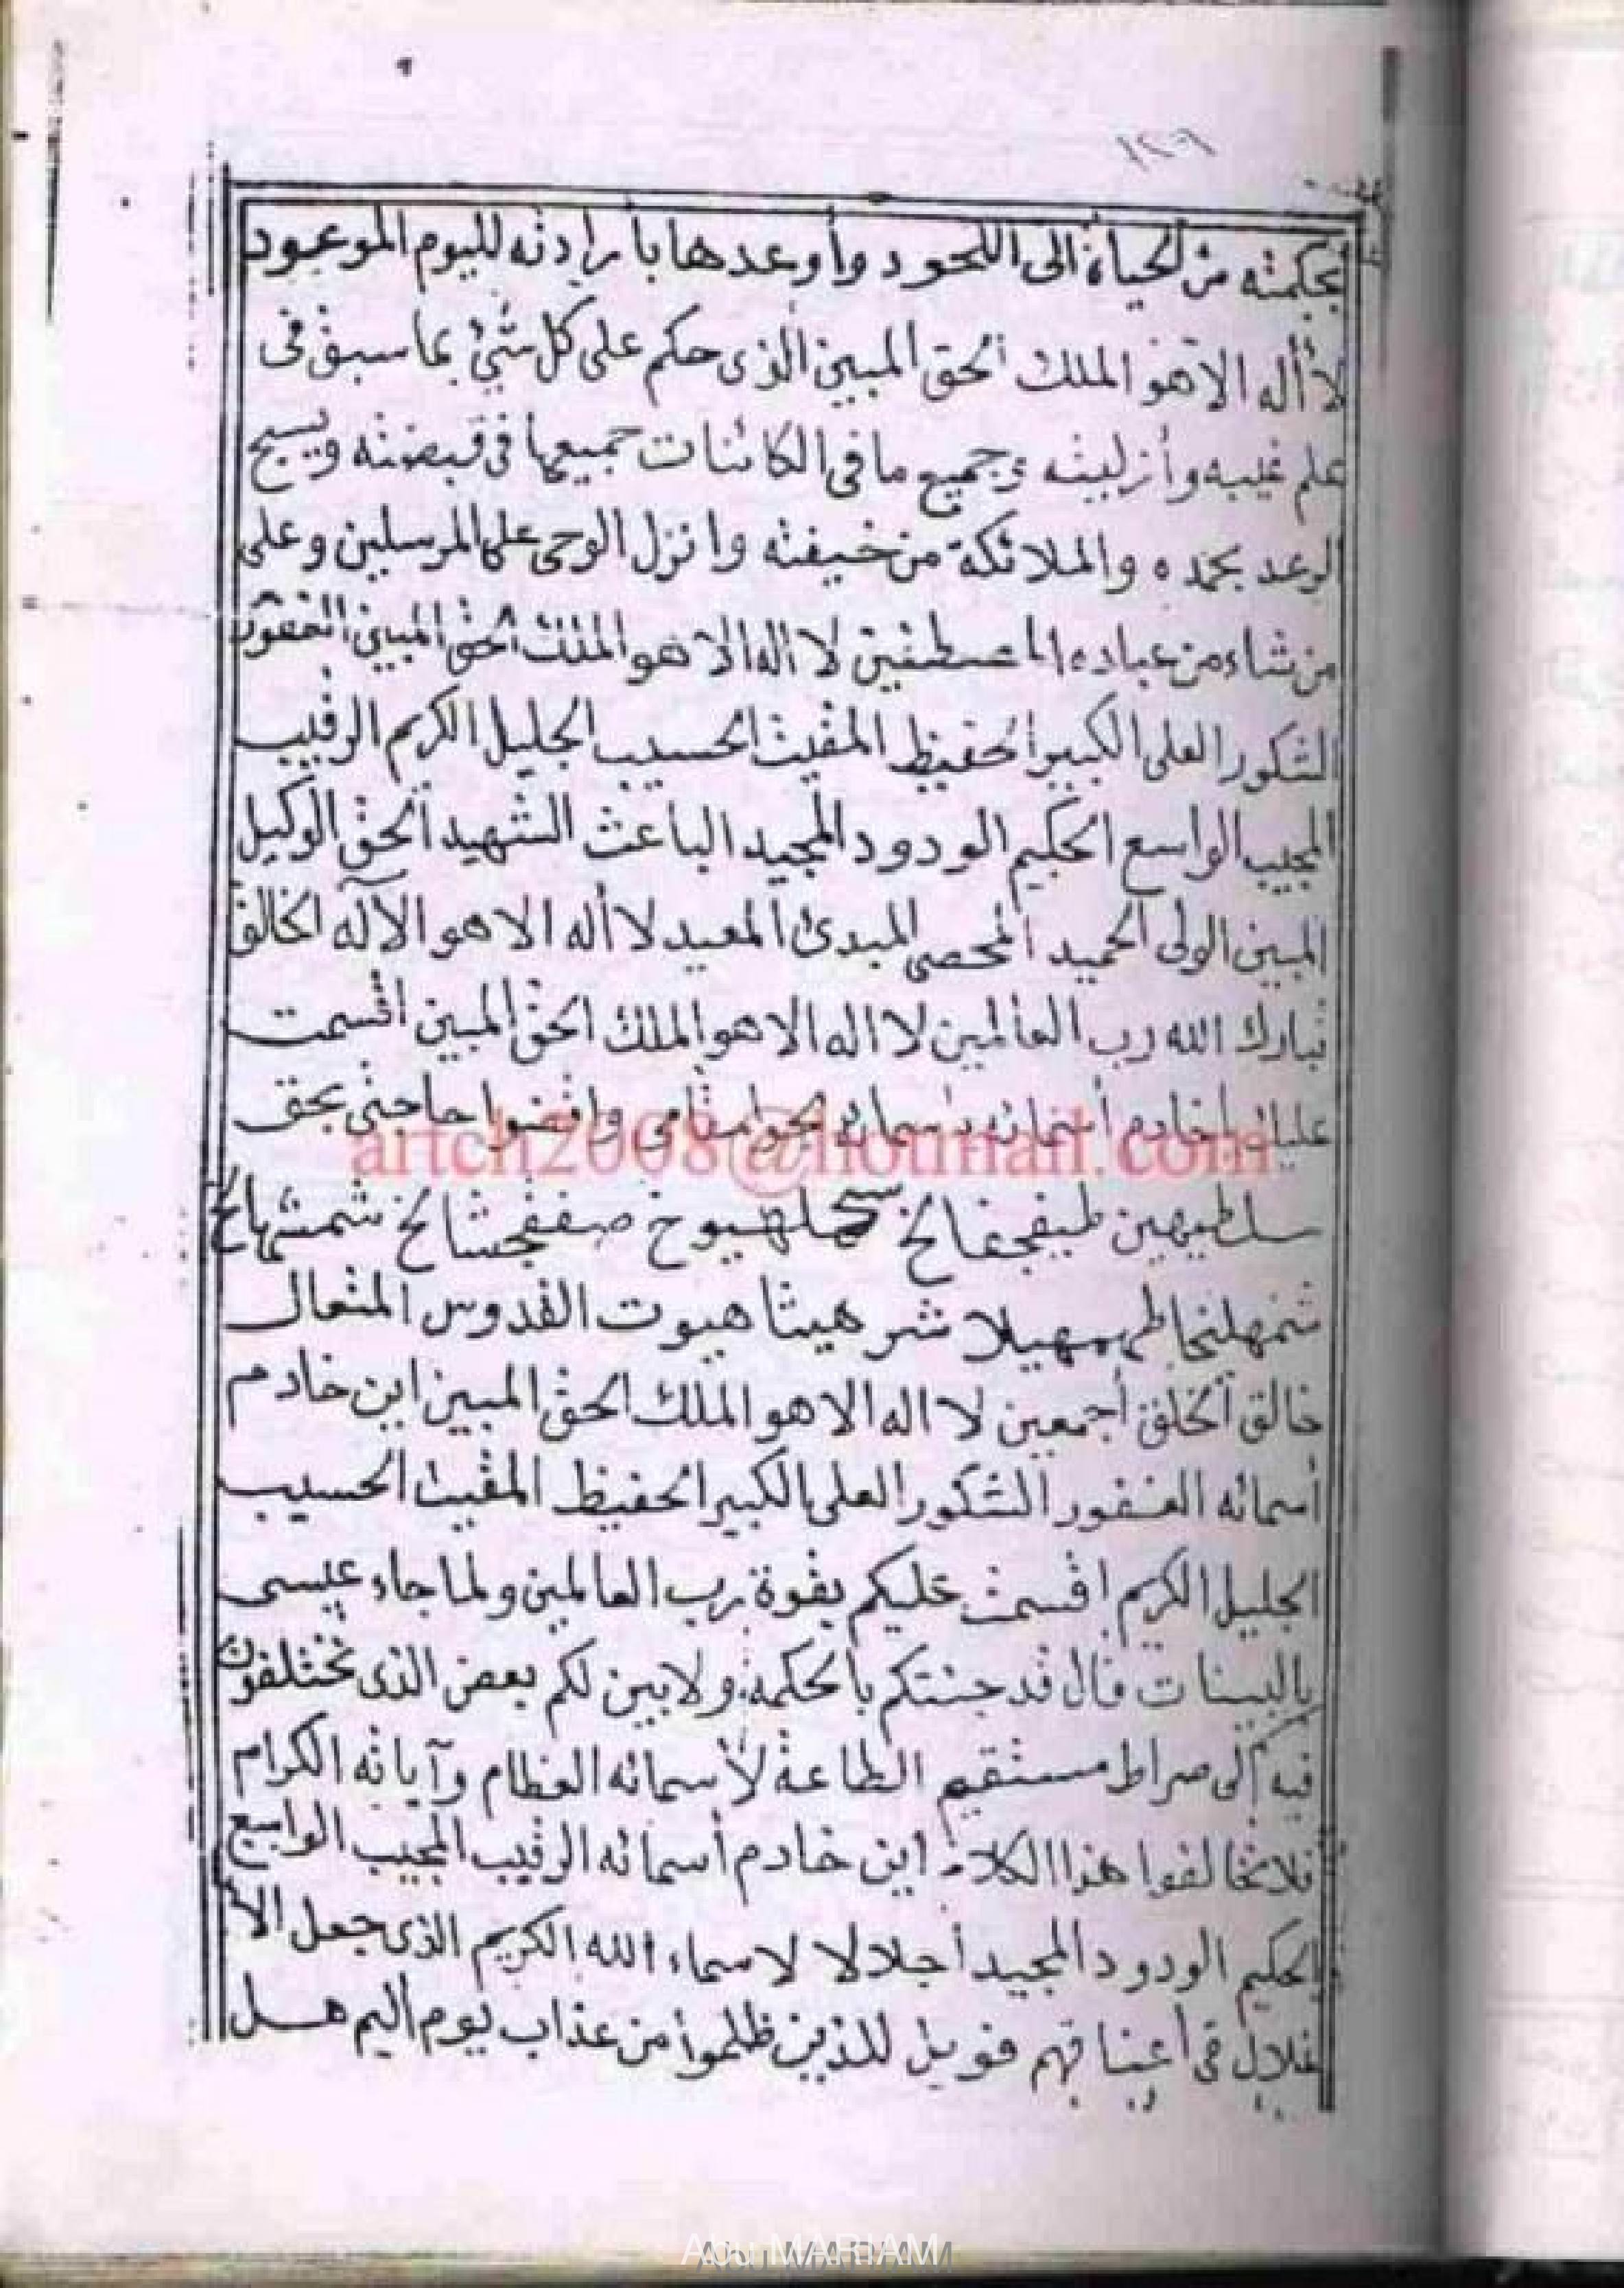 ١٤٦
بحكمته من الحياة الى اللحود وأوعدها بارادته لليوم الموعود
لا أله الا هو الملك الحق المبين الذى حكم على كل شئ بما سبق فى
علم غيبه وأزليته وجميع ما فى الكائنات جميعها فى قبضته ويسبح
الرعد بحمده والملائكة من خيفته وانزل الوحى على المرسلين وعلى
من شاء من عباده المصطفين لا اله الا هو الملك الحق المبين الغفور
الشكور العلى الكبير الحفيظ المقيت الحسيب الجليل الكريم الرقيب
المجيب الواسع الحكيم الودود المجيد الباعث الشهيد الحق الوكيل
المبين الولى الحميد المحصى المبدئ المعيد لا أله الا هو الآله الخالق
تبارك الله رب العالمين لا اله الا هو الملك الحق المبين اقسمت
عليك ياخادم أسمائه واقضوا حاجتى بحق
artch2008@hotmail.com
سلطيهين طيفجغالخ صففجشالخ شمشهالخ
مهيلا شرهيثا هيوت القدوس المتعال
خالق الخلق أجمعين لا اله الا هو الملك الحق المبين اين خادم
أسمائه الغفور الشكور العلى الكبير الحفيظ المقيت الحسيب
الجليل الكريم اقسمت عليكم بقوة رب العالمين ولما جاء عيسى
بالبينات قال قد جئتكم بالحكمة ولابين لكم بعض الذى تختلفون
فيه الى صراط مستقيم الطاعة لأسمائه العظام وآياته الكرام
فلاتخالفوا هذا الكلام اين خادم أسمائه الرقيب المجيب الواسع
الحكيم الودود المجيد أجلالا لاسماء الله الكريم الذى جعل الأ
غلال فى أعناقهم فويل للذين ظلموا من عذاب يوم اليم هل
Abu MARIAM